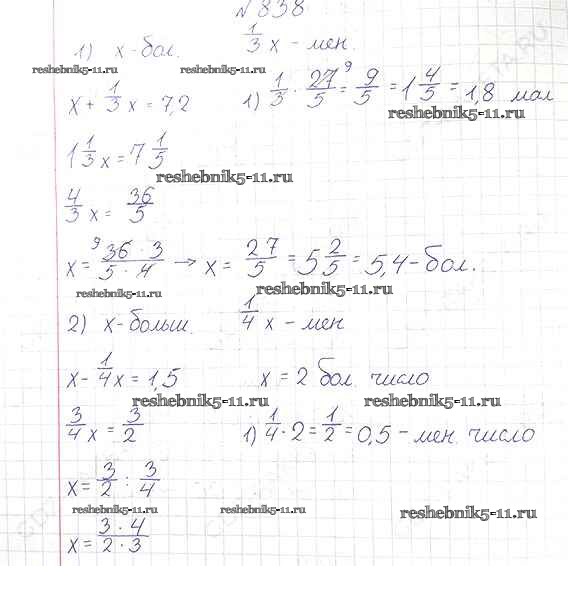 № 838
1) x - бол. 1/3 x - мен.
reshebnik5-11.ru reshebnik5-11.ru
x + 1/3 x = 7,2 1) 1/3 · 27/5 9 = 9/5 = 1 4/5 = 1,8 мал
reshebnik5-11.ru
1 1/3 x = 7 1/5
reshebnik5-11.ru
4/3 x = 36/5
x = 9 36 · 3 / 5 · 4 → x = 27/5 = 5 2/5 = 5,4 - бол.
reshebnik5-11.ru reshebnik5-11.ru
2) x - больш. 1/4 x - мен
x - 1/4 x = 1,5 x = 2 бол. число
reshebnik5-11.ru reshebnik5-11.ru
3/4 x = 3/2 1) 1/4 · 2 = 1/2 = 0,5 - мен. число
x = 3/2 : 3/4
reshebnik5-11.ru reshebnik5-11.ru reshebnik5-11.ru
x = 3 · 4 / 2 · 3